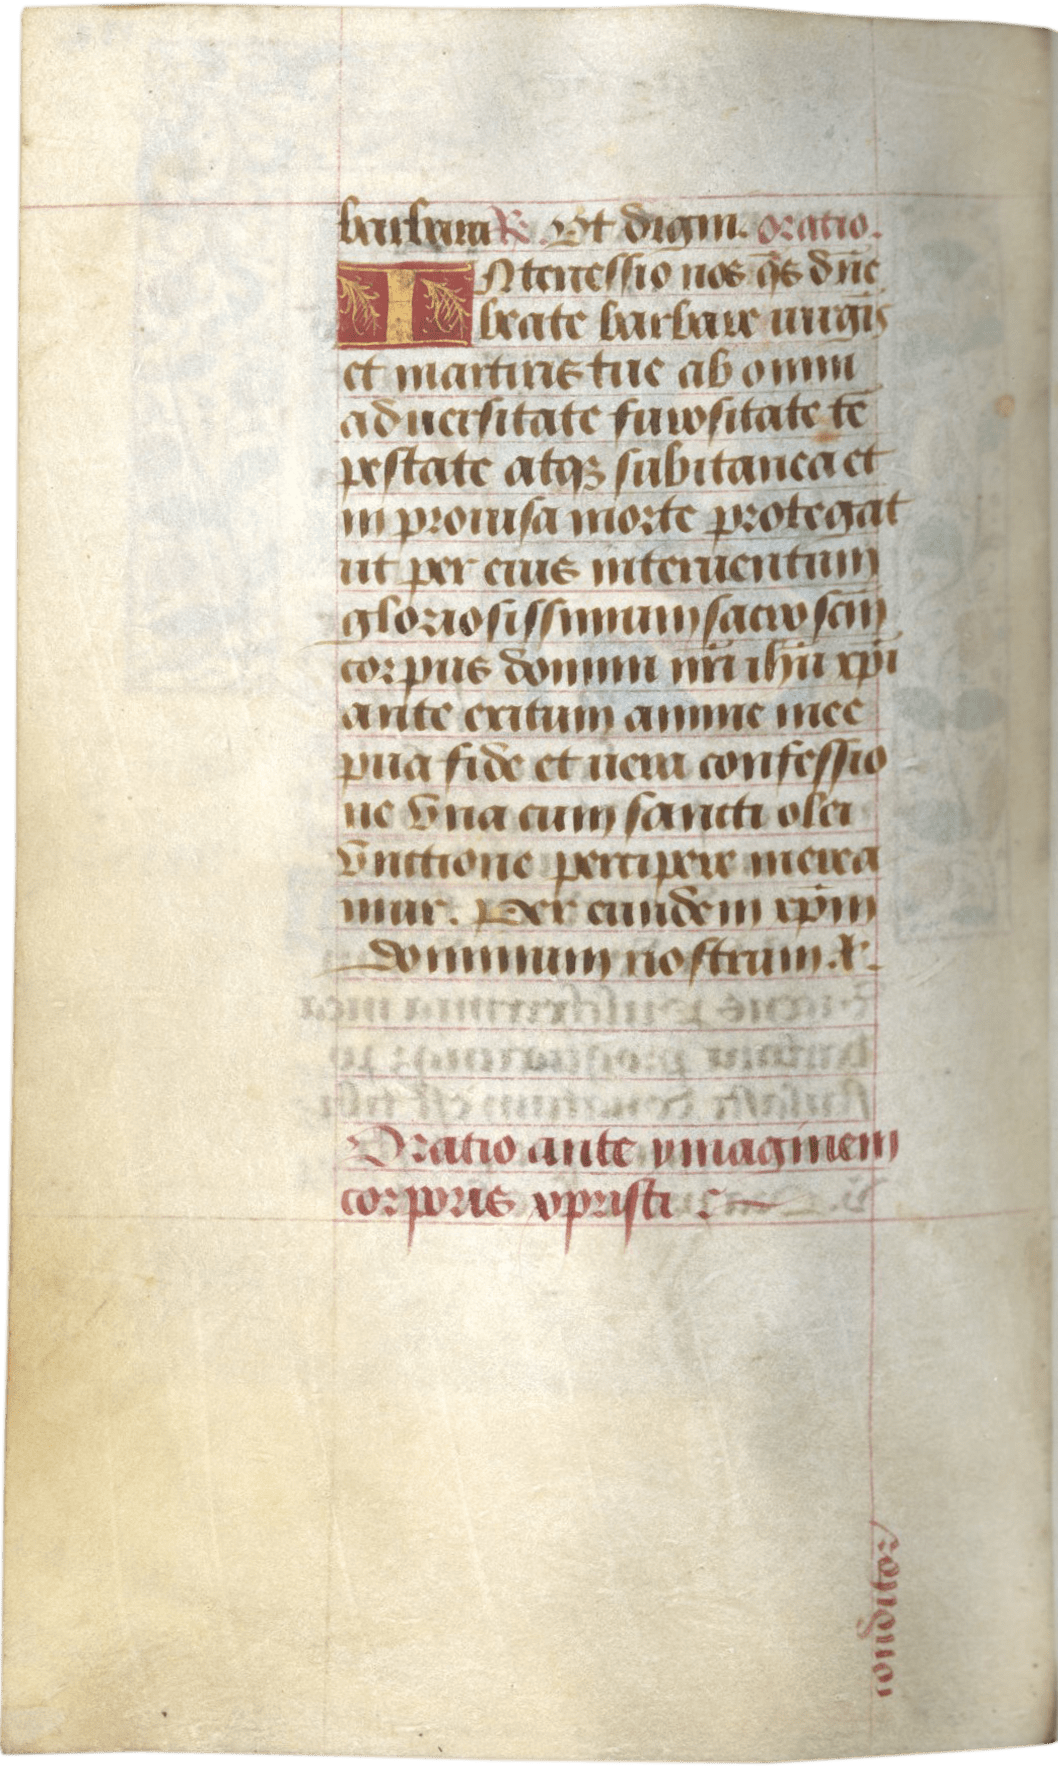 barbara R. Vt digni. oratio.
INtercessio nos q̄s dn̄e
beate barbare uirgis
et martiris tue ab omni
aduersitate furositate tē
pestate atqꝫ subitanea et
in prouisa morte protegat
ut per eius interuentum
gloriosissimum sacro scm̄
corpus domini nr̄i ih̄u xp̄i
ante exitum anime mee
pua fide et uera confessio
ne vna cum sancti olei
vnctione percipere merea
mur. Per eundem xp̄m
dominum nostrum. &.
Oratio ante ymaginem
corporis xpristi
conditor